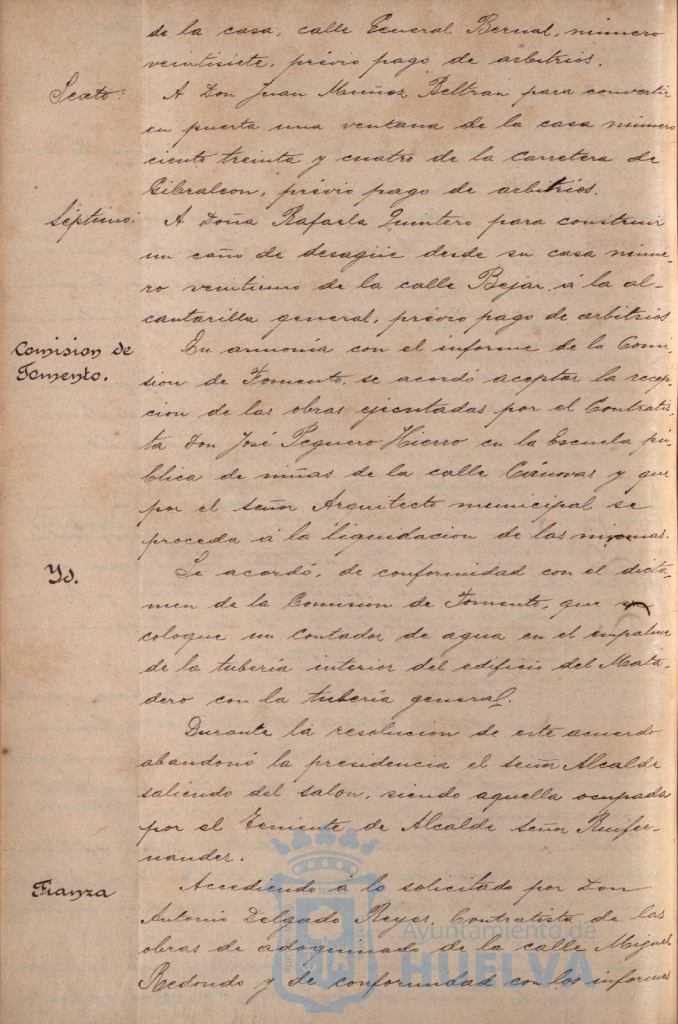 de la casa, calle General Bernal, número
veintisiete, prévio pago de arbitrios.
Sexto: A Don Juan Muñoz Beltran para convertir
en puerta una ventana de la casa número
ciento treinta y cuatro de la Carretera de
Gibraleon, prévio pago de arbitrios.
Séptimo: A Doña Rafaela Quintero para construir
un caño de desagüe desde su casa núme-
ro veintiuno de la calle Bejar á la al-
cantarilla general, prévio pago de arbitrios
Comision de Fomento. En armonía con el informe de la Comi-
sion de Fomento, se acordó aceptar la recep-
cion de las obras ejecutadas por el Contratis-
ta Don José Peguero Hierro en la Escuela pú-
blica de niñas de la calle Cánovas y que
por el señor Arquitecto municipal se
proceda á la liquidacion de las mismas.
Yd. Se acordó, de conformidad con el dicta-
men de la Comision de Fomento, que se
coloque un contador de agua en el empalme
de la tubería interior del edificio del Mata-
dero con la tubería general.
Durante la resolucion de este acuerdo
abandonó la presidencia el señor Alcalde
saliendo del salon, siendo aquella ocupada
por el Teniente de Alcalde señor Ruifer-
nandez.
Fianza Accediendo á lo solicitado por Don
Antonio Delgado Reyes, Contratista de las
obras de adoquinado de la calle Miguel
Redondo y de conformidad con los informes
Ayuntamiento de
HUELVA